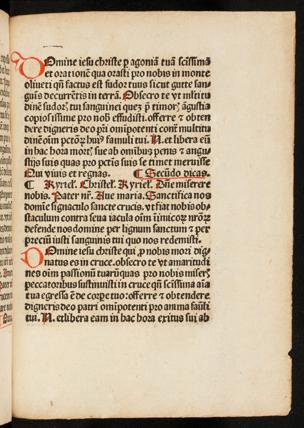 Domine iesu christe ꝑ agoniā tuā scīssimā
et orationē qua orasti pro nobis in monte
oliueti qn̄ factus est sudor tuus sicut gutte san-
guīs decurrētis in terrā. Obsecro te vt mltitu
dinē sudoꝝ tui sanguinei quez p̄ timoꝛ. āgustia
copiosissime pro nob̄ effudisti. offerre ⁊ obten
dere digneris deo pr̄i omīpotenti contͣ multitu
dinē oīm pctōꝝ hui⁹ famuli tui. N. et libera eū
in hac hora moꝛtʼ. sue ab omnibus penis ⁊ angu-
stijs suis quas pro pctīs suis se timet meruisse
Qui viuis et regnas. ¶ Secūdo dicas.
¶ Kyriel. Christel. Kyriel. Dn̄e miserere
nobis. Pater nr̄. Aue maria. Sanctifica nos
domīe signaculo sancte crucis. vt fiat nobis ob-
staculum contra seua iacula oīm īimicoꝝ nr̄oꝝ
defende nos domine per lignum sanctum ⁊ per
preciū iusti sanguinis tui quo nos redemisti.
Domine iesu christe qui ꝓ nobis moꝛi dig-
natus es in cruce. obsecro te vt amaritudi
nes oīm passionū tuarū quas pro nobis miserꝭ
peccatoribus sustinuisti in cruce qn̄ scīssima aīa
tua egressa ē de coꝛpe tuo: offerre ⁊ obtendere
digneris deo patri omīpotenti pro anima famli
tui. N. et libera eam in hac hora exitus sui ab